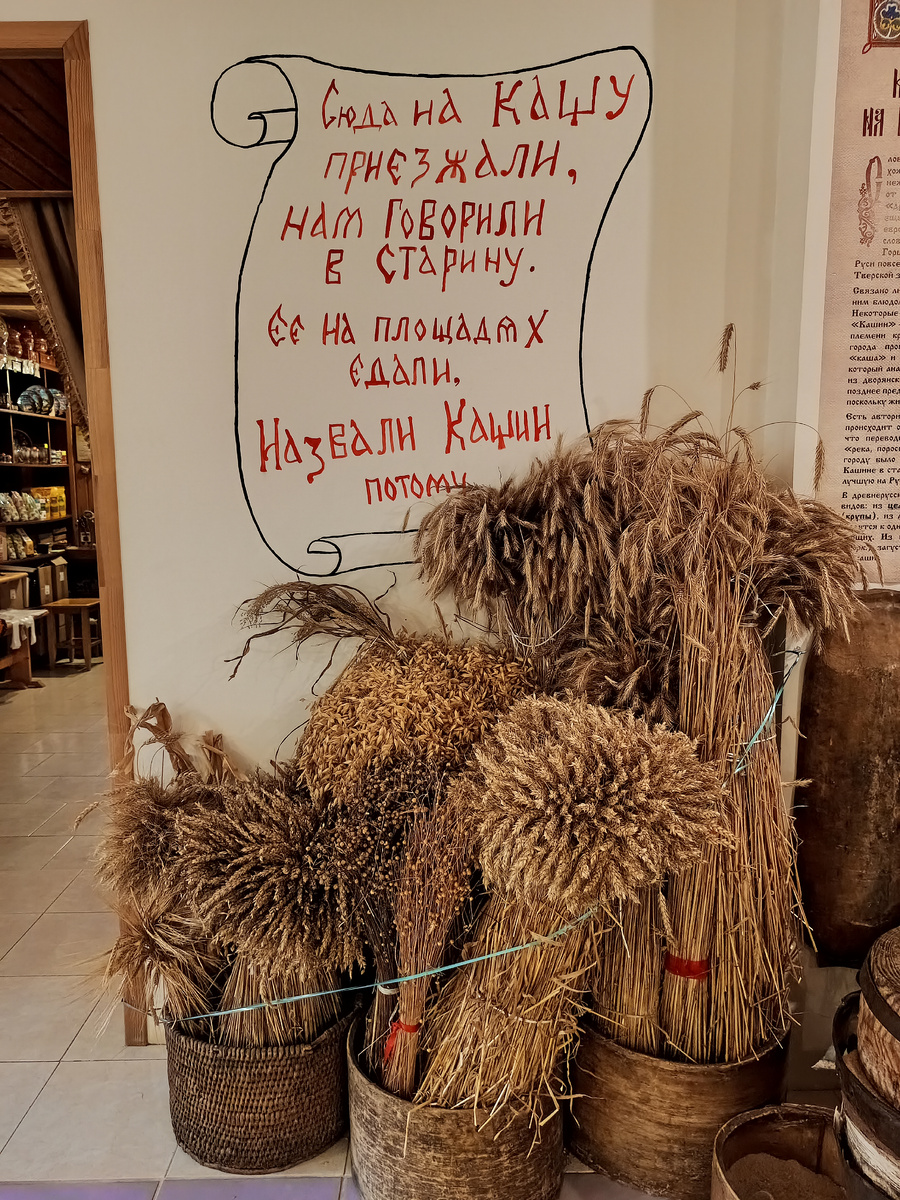 Сюда на кашу
приезжали,
нам говорили
в старину.
Её на площадях
едали,
Назвали Кашин
потому
К
на
Слов
хож
неж
от
Горо
Руси повсе
Тверской з
Связано ли
ним блюдо
Некоторые
«Кашин»
племени кр
города про
«каша» и
который ана
из дворянск
позднее пред
поскольку жи
Есть автори
происходит о
что перевод
«река, порос
городу было
Кашине в ста
лучшую на Ру
В древнерус
видов: из це
(крупы), из